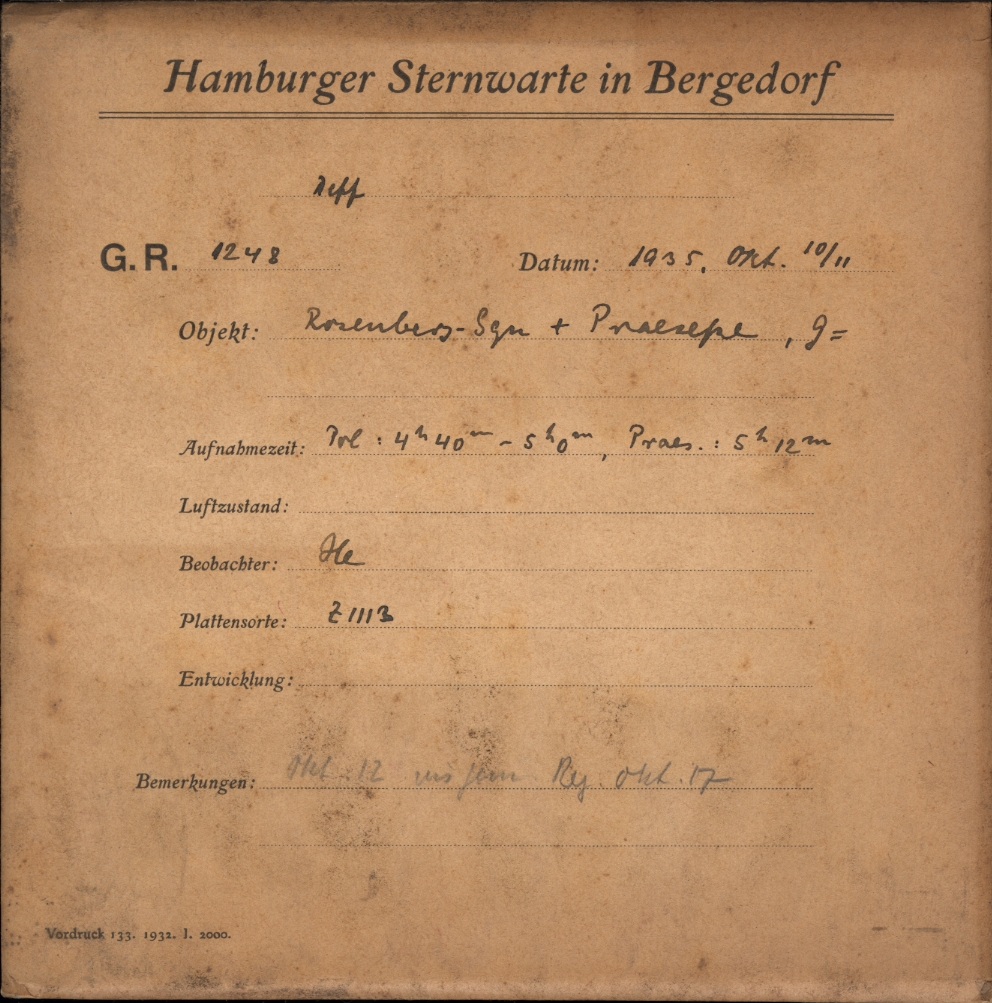 Hamburger Sternwarte in Bergedorf
G. R. 1248 Datum: 1935, Okt. 10/11
Objekt: Rosenberg-Sqn + Praesepe, g=
Aufnahmezeit: Pol : 4h 40m - 5h 0m, Praes. : 5h 12m
Luftzustand:
Beobachter: He
Plattensorte: Z 1113
Entwicklung:
Bemerkungen: Okt. 12 Reg. Okt. 17
Vordruck 133. 1932. I. 2000.